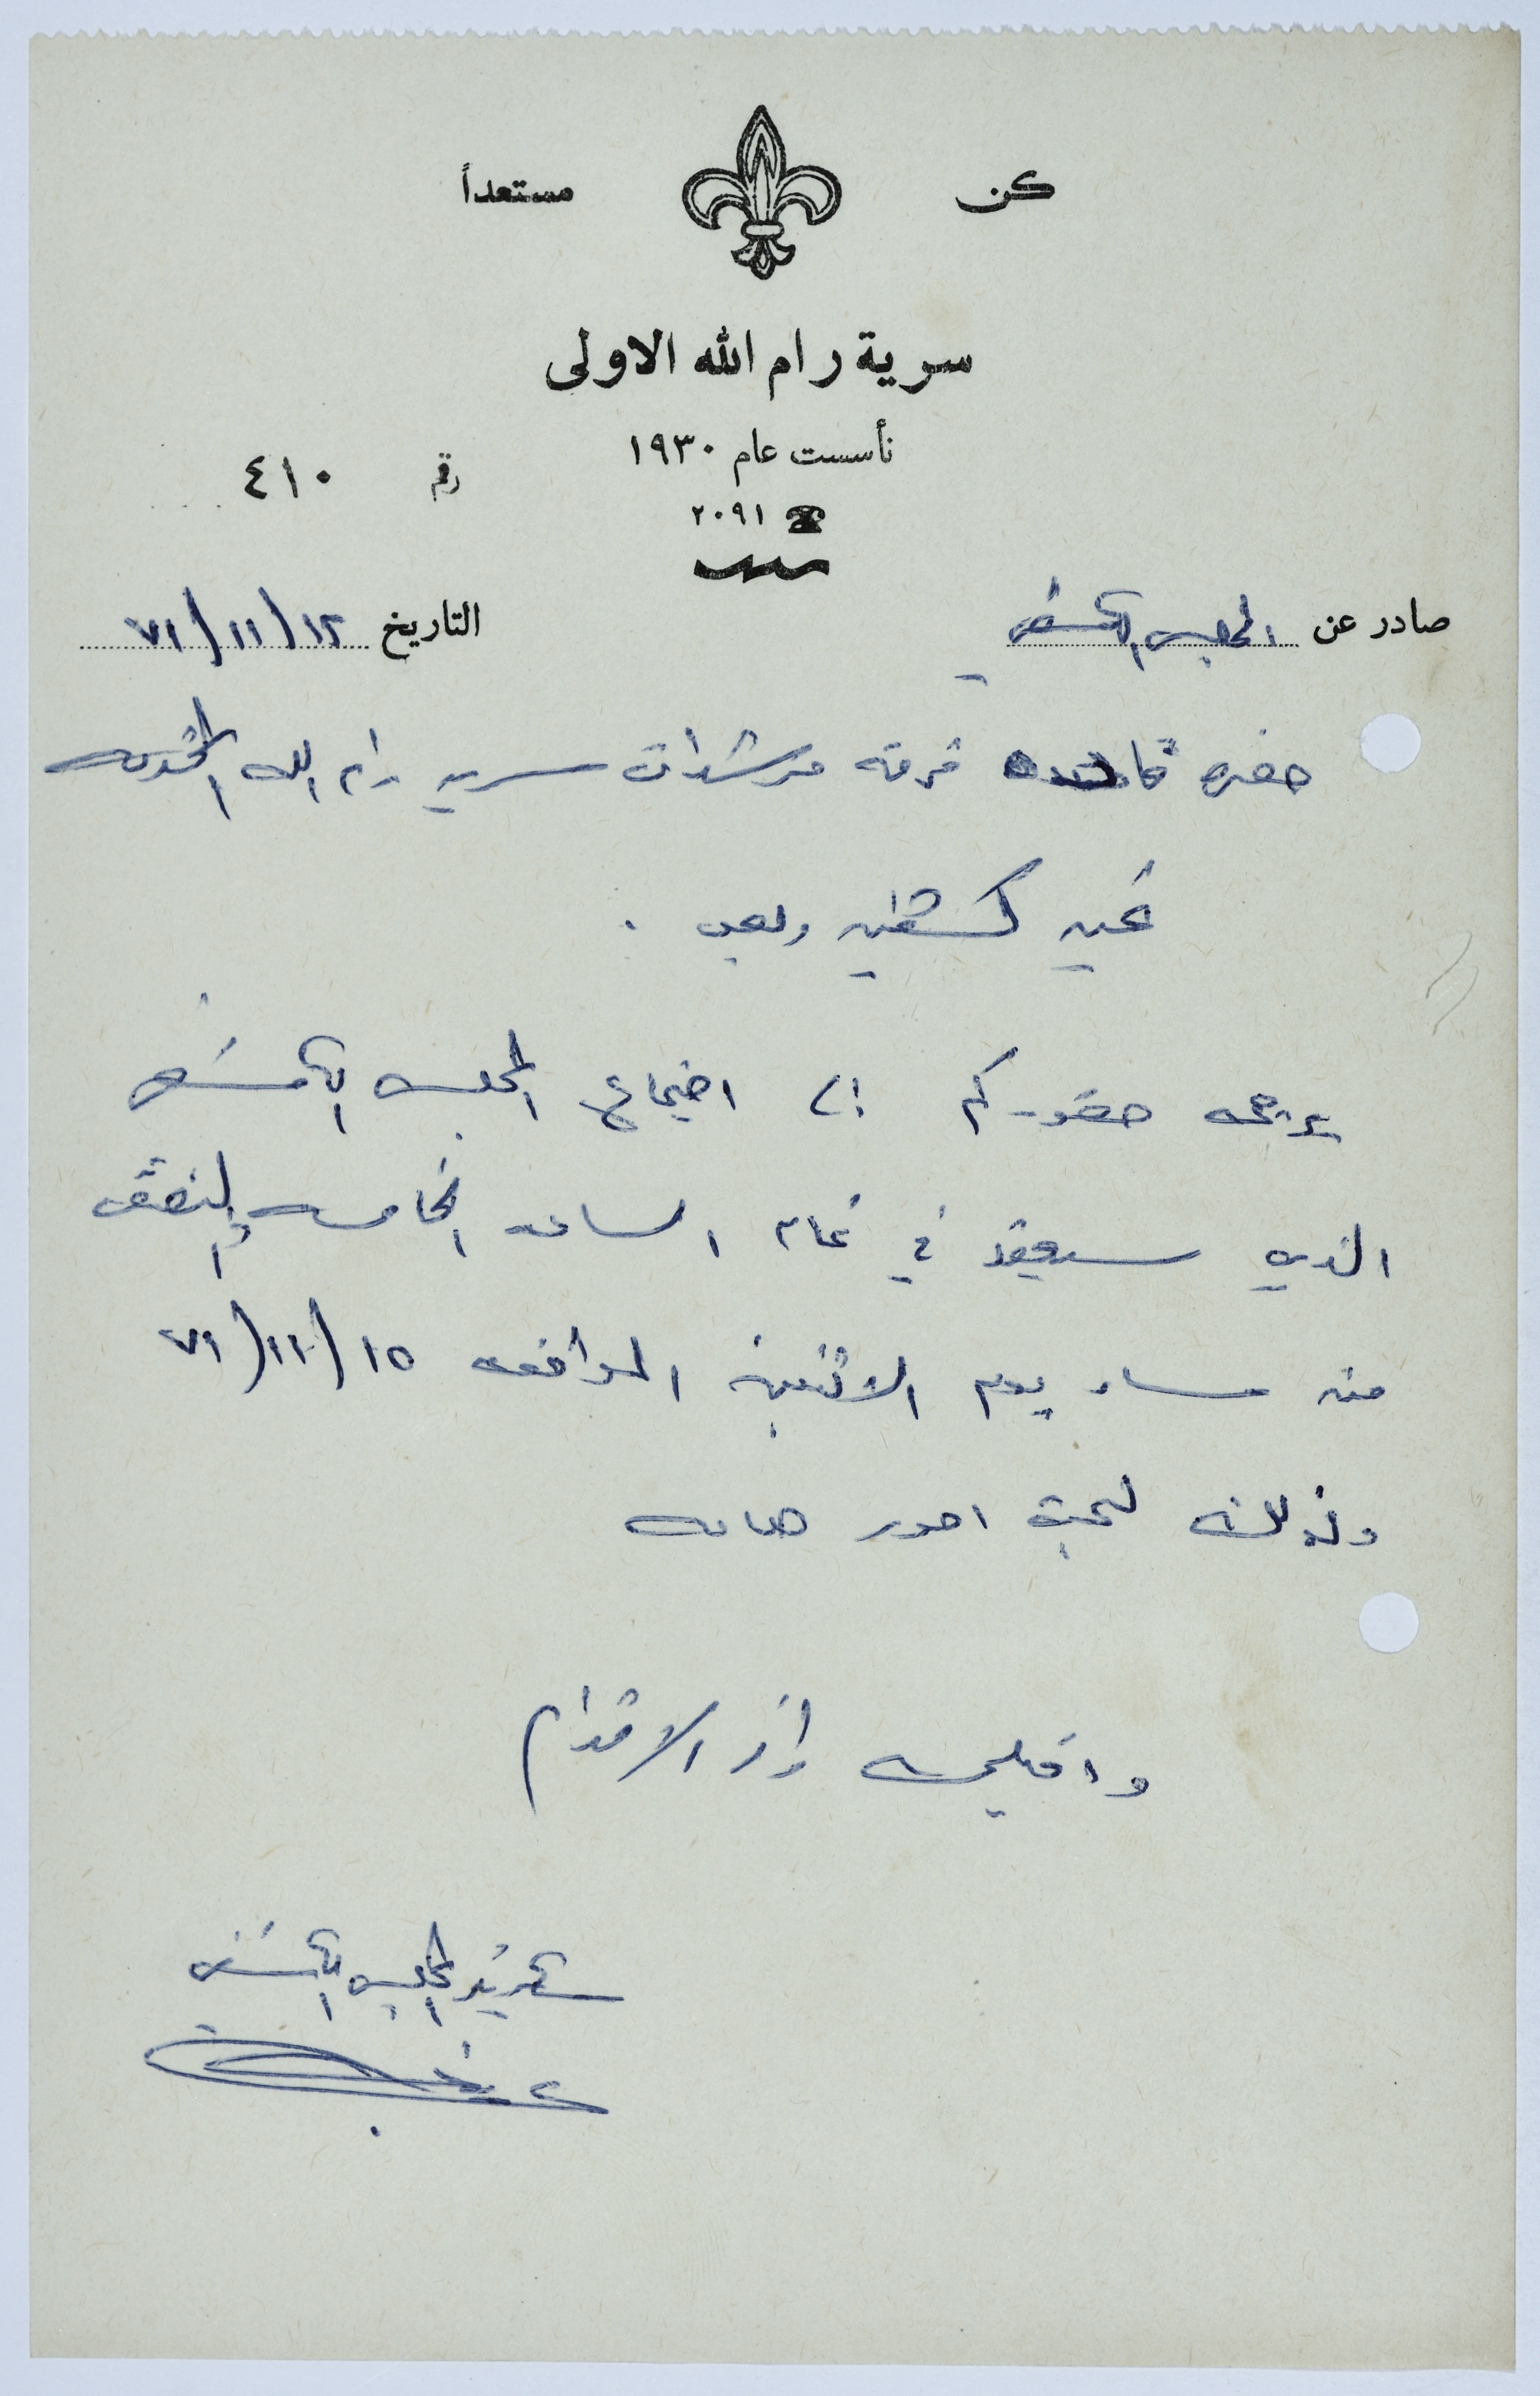 كن مستعداً
سرية رام الله الاولى
تأسست عام ١٩٣٠
رقم ٤١٠
☎ ٢٠٩١
صادر عن المجلس الكشفي
التاريخ ١٢/١١/٧١
حضرة قائدة فرقة مرشدات سرية رام الله المحترمه
تحيه كشفيه وبعد .
يرجى حضوركم الى اجتماع المجلس الكشفي
الذي سيعقد في تمام الساعه الخامسه والنصف
من مساء يوم الاثنين الموافق ١٥/١١/٧١
وذلك لبحث امور هامه
واقبلوا الاحترام
سكرتير المجلس الكشفي